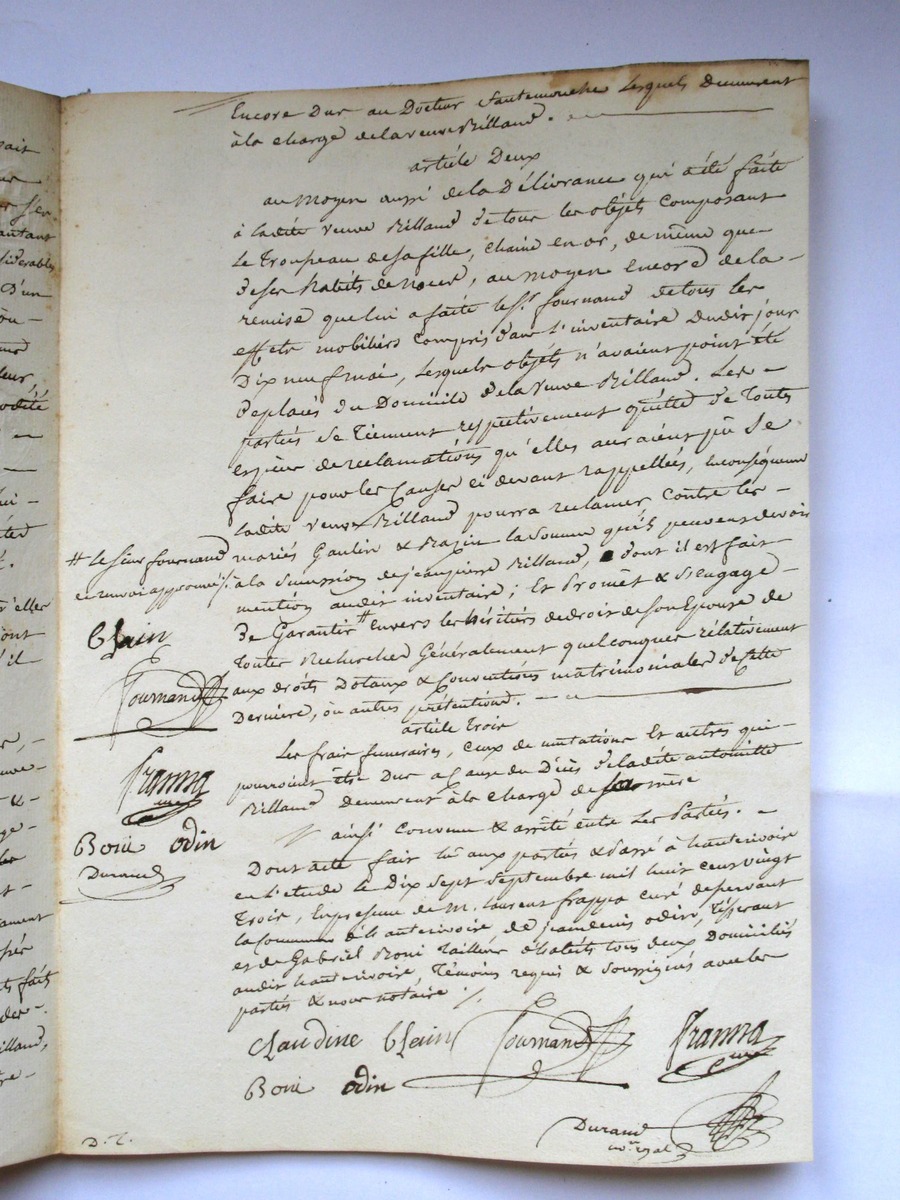 Encore Dus au Docteur Sautemouche Lesquels Demeurent
à la charge de la veuve Rilland.
article Deux
au moyen aussi de la Délivrance qui a été faite
à ladite veuve Rilland de tous les objets composant
le Troupeau de sa fille, chaine en or, de même que
de ses habits de noces, au moyen Encore de la
remise que lui a faite le Sr. fournand de tous les
effets mobiliers Compris dans l'inventaire dudit jour
Dix neuf mai, Lesquels objets n'avaient point été
Deplacés du Domicile de la Veuve Rilland. Les
parties se Tiennent respectivement quitte de Toutes
espèces de reclamations qu'elles auraient pû se
faire pour les Causes ci devant rappellées, Enconséquence
ladite Veuve Rilland pourra reclamer Contre les
mariés Gaulin & Razin la Somme qu'ils peuvent devoir
à la Succession de jeanpierre Rilland, dont il est fait
mention audit inventaire; Et Promet & S'engage
De Garantir # Envers les héritiers de droit de son Epouse de
Toutes Recherches Généralement quelconques rélativement
aux droits Dotaux & Conventions matrimoniales de Cette
Derniere, ou autres prétentions.
article Trois
Les frais funeraires, Ceux de mutations Et autres qui
pourroient être Dus a Cause du Décès de ladite antoinette
Rilland demeurent à la Charge de sa mère
ainsi Convenu & arrêté entre Les Parties.
Dont acte fait lu aux parties & Passé à hauterivoire
en l'etude le Dix Sept Septembre mil huit Cent vingt
Trois, En presence de M. laurent frappa curé desservant
la Commune d'hauterivoire, de jeandenis odin, Tisserant
et de Gabriel Boni Tailleur d'habits tous deux Domiciliés
audit hauterivoire, Témoins requis & Soussignés avec les
parties & nous notaire ./.
claudine Clain fournand frappa
curé
Boni odin
Durand
nore. royal
# le sieur fournand
ce renvoi approuvé ./.
Clain
fournand
frappa
curé
Boni odin
Durand
D. T.